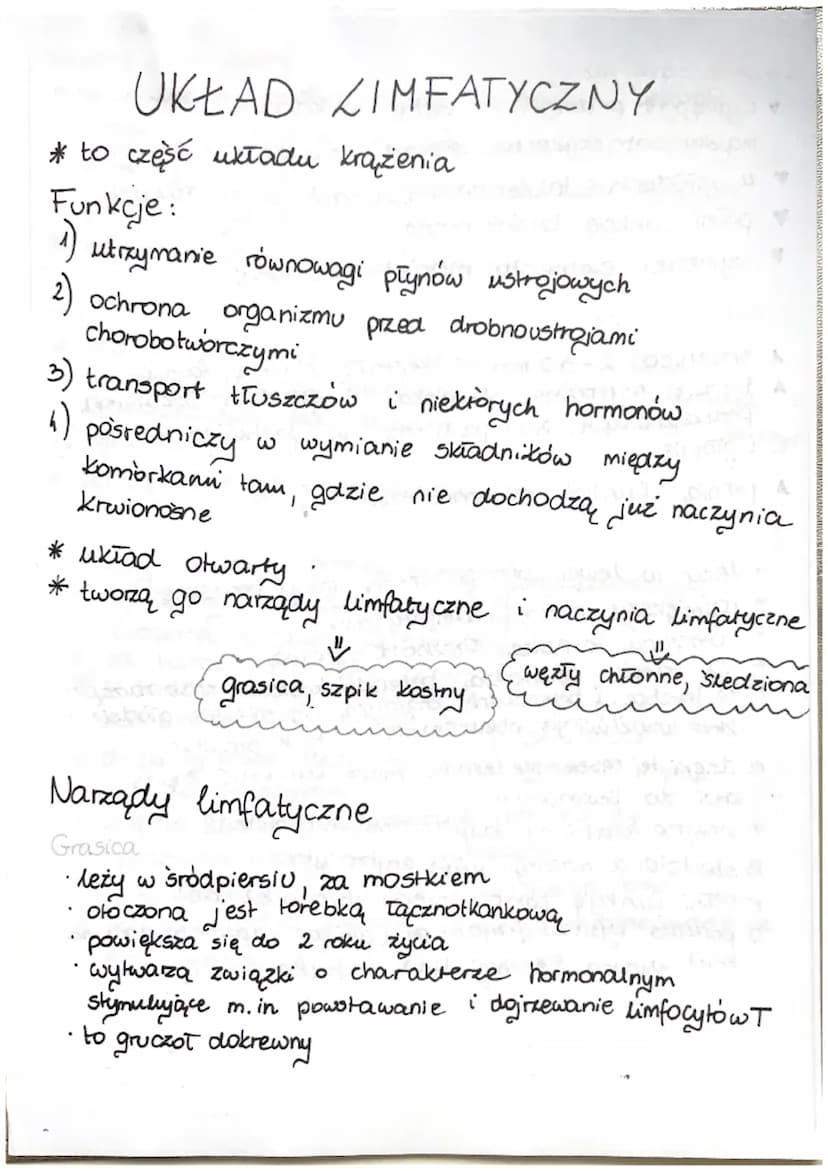 UKŁAD LIMFATYCZNY
* to część układu krążenia
Funkcje:
1) utrzymanie równowagi płynów ustrojowych
2) ochrona organizmu przed drobnoustrojami
chorobotwórczymi
3) transport tłuszczów i niektórych hormonów
4) pośredniczy w wymianie składników między
komórkami tam, gdzie nie dochodzą już naczynia
krwionośne
* układ otwarty
* tworzą go narządy limfatyczne i naczynia limfatyczne
⇓ ⇓
grasica, szpik kostny węzły chłonne, śledziona
Narządy limfatyczne
Grasica
· leży w śródpiersiu, za mostkiem
· otoczona jest torebką łącznotkankową
· powiększa się do 2 roku życia
· wytwarza związki o charakterze hormonalnym
stymulujące m.in powstawanie i dojrzewanie limfocytów T
· to gruczoł dokrewny